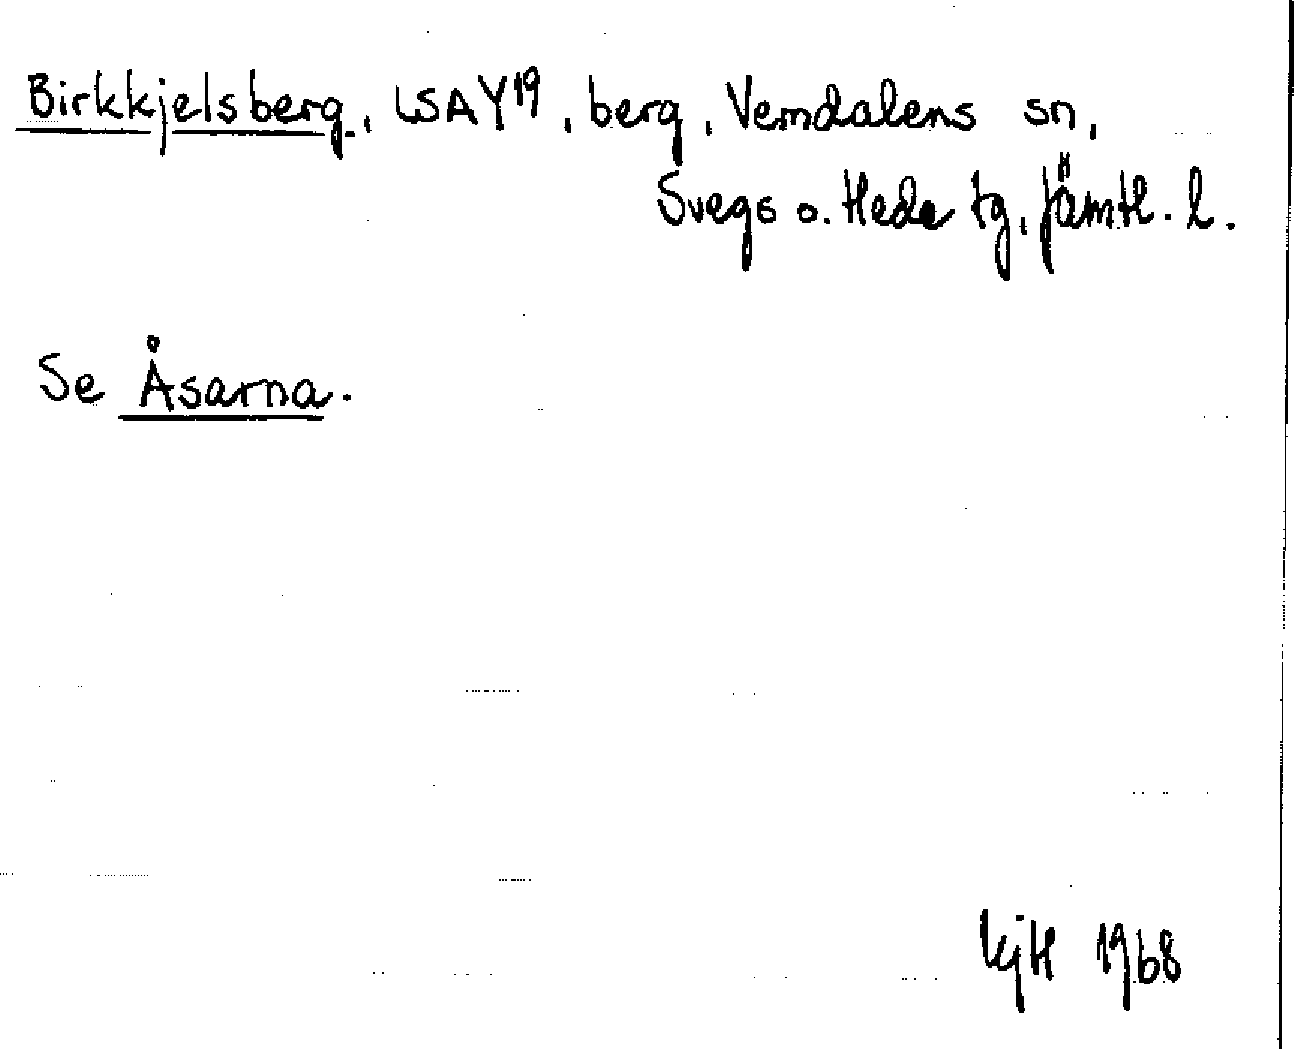 Birkkjelsberg, LSAY19, berg, Vemdalens sn,
Svegs o. Hede tg, Jämtl. l.
Se Åsarna.
KjH 1968